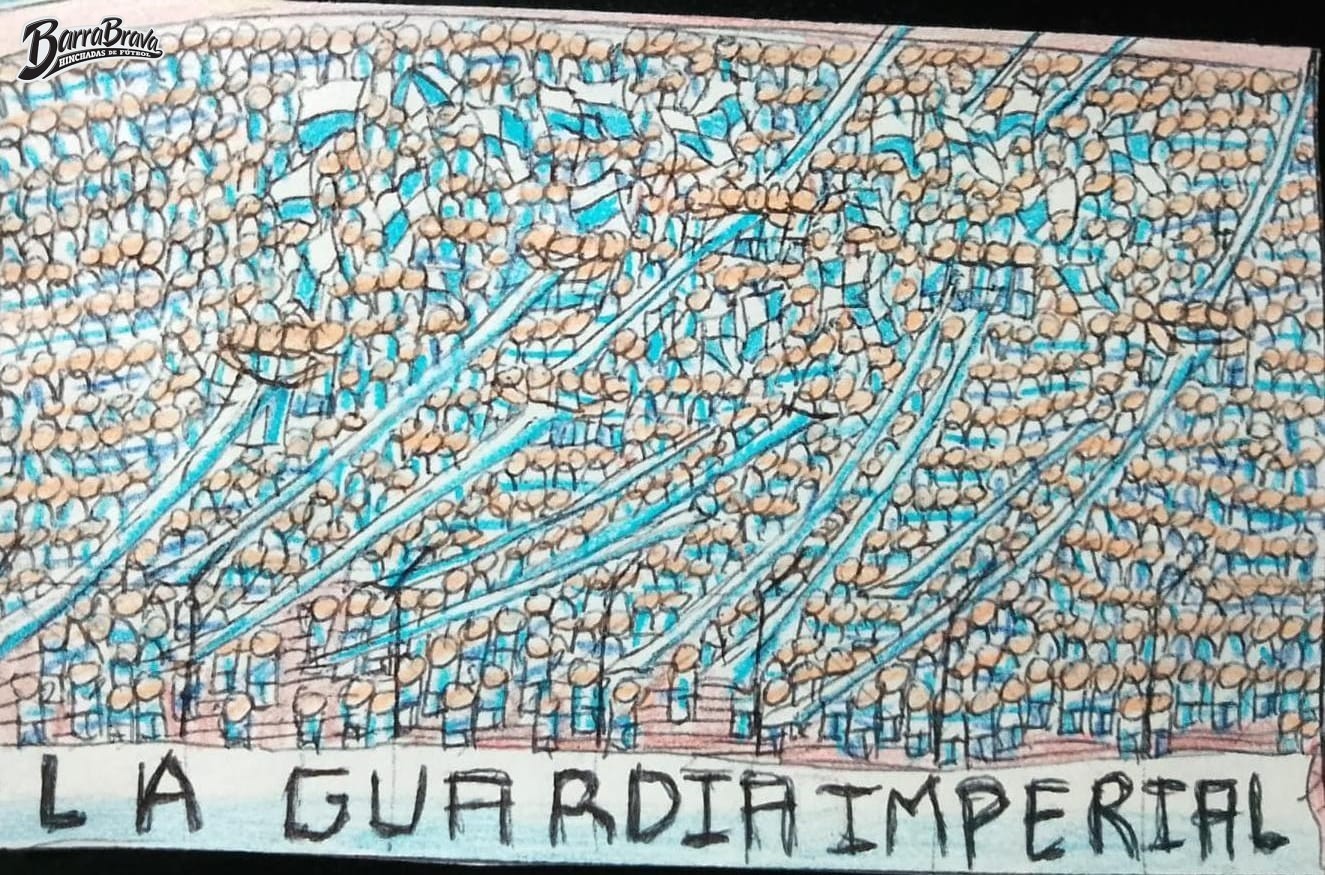 BarraBrava
HINCHADAS DE FÚTBOL
LA GUARDIA IMPERIAL